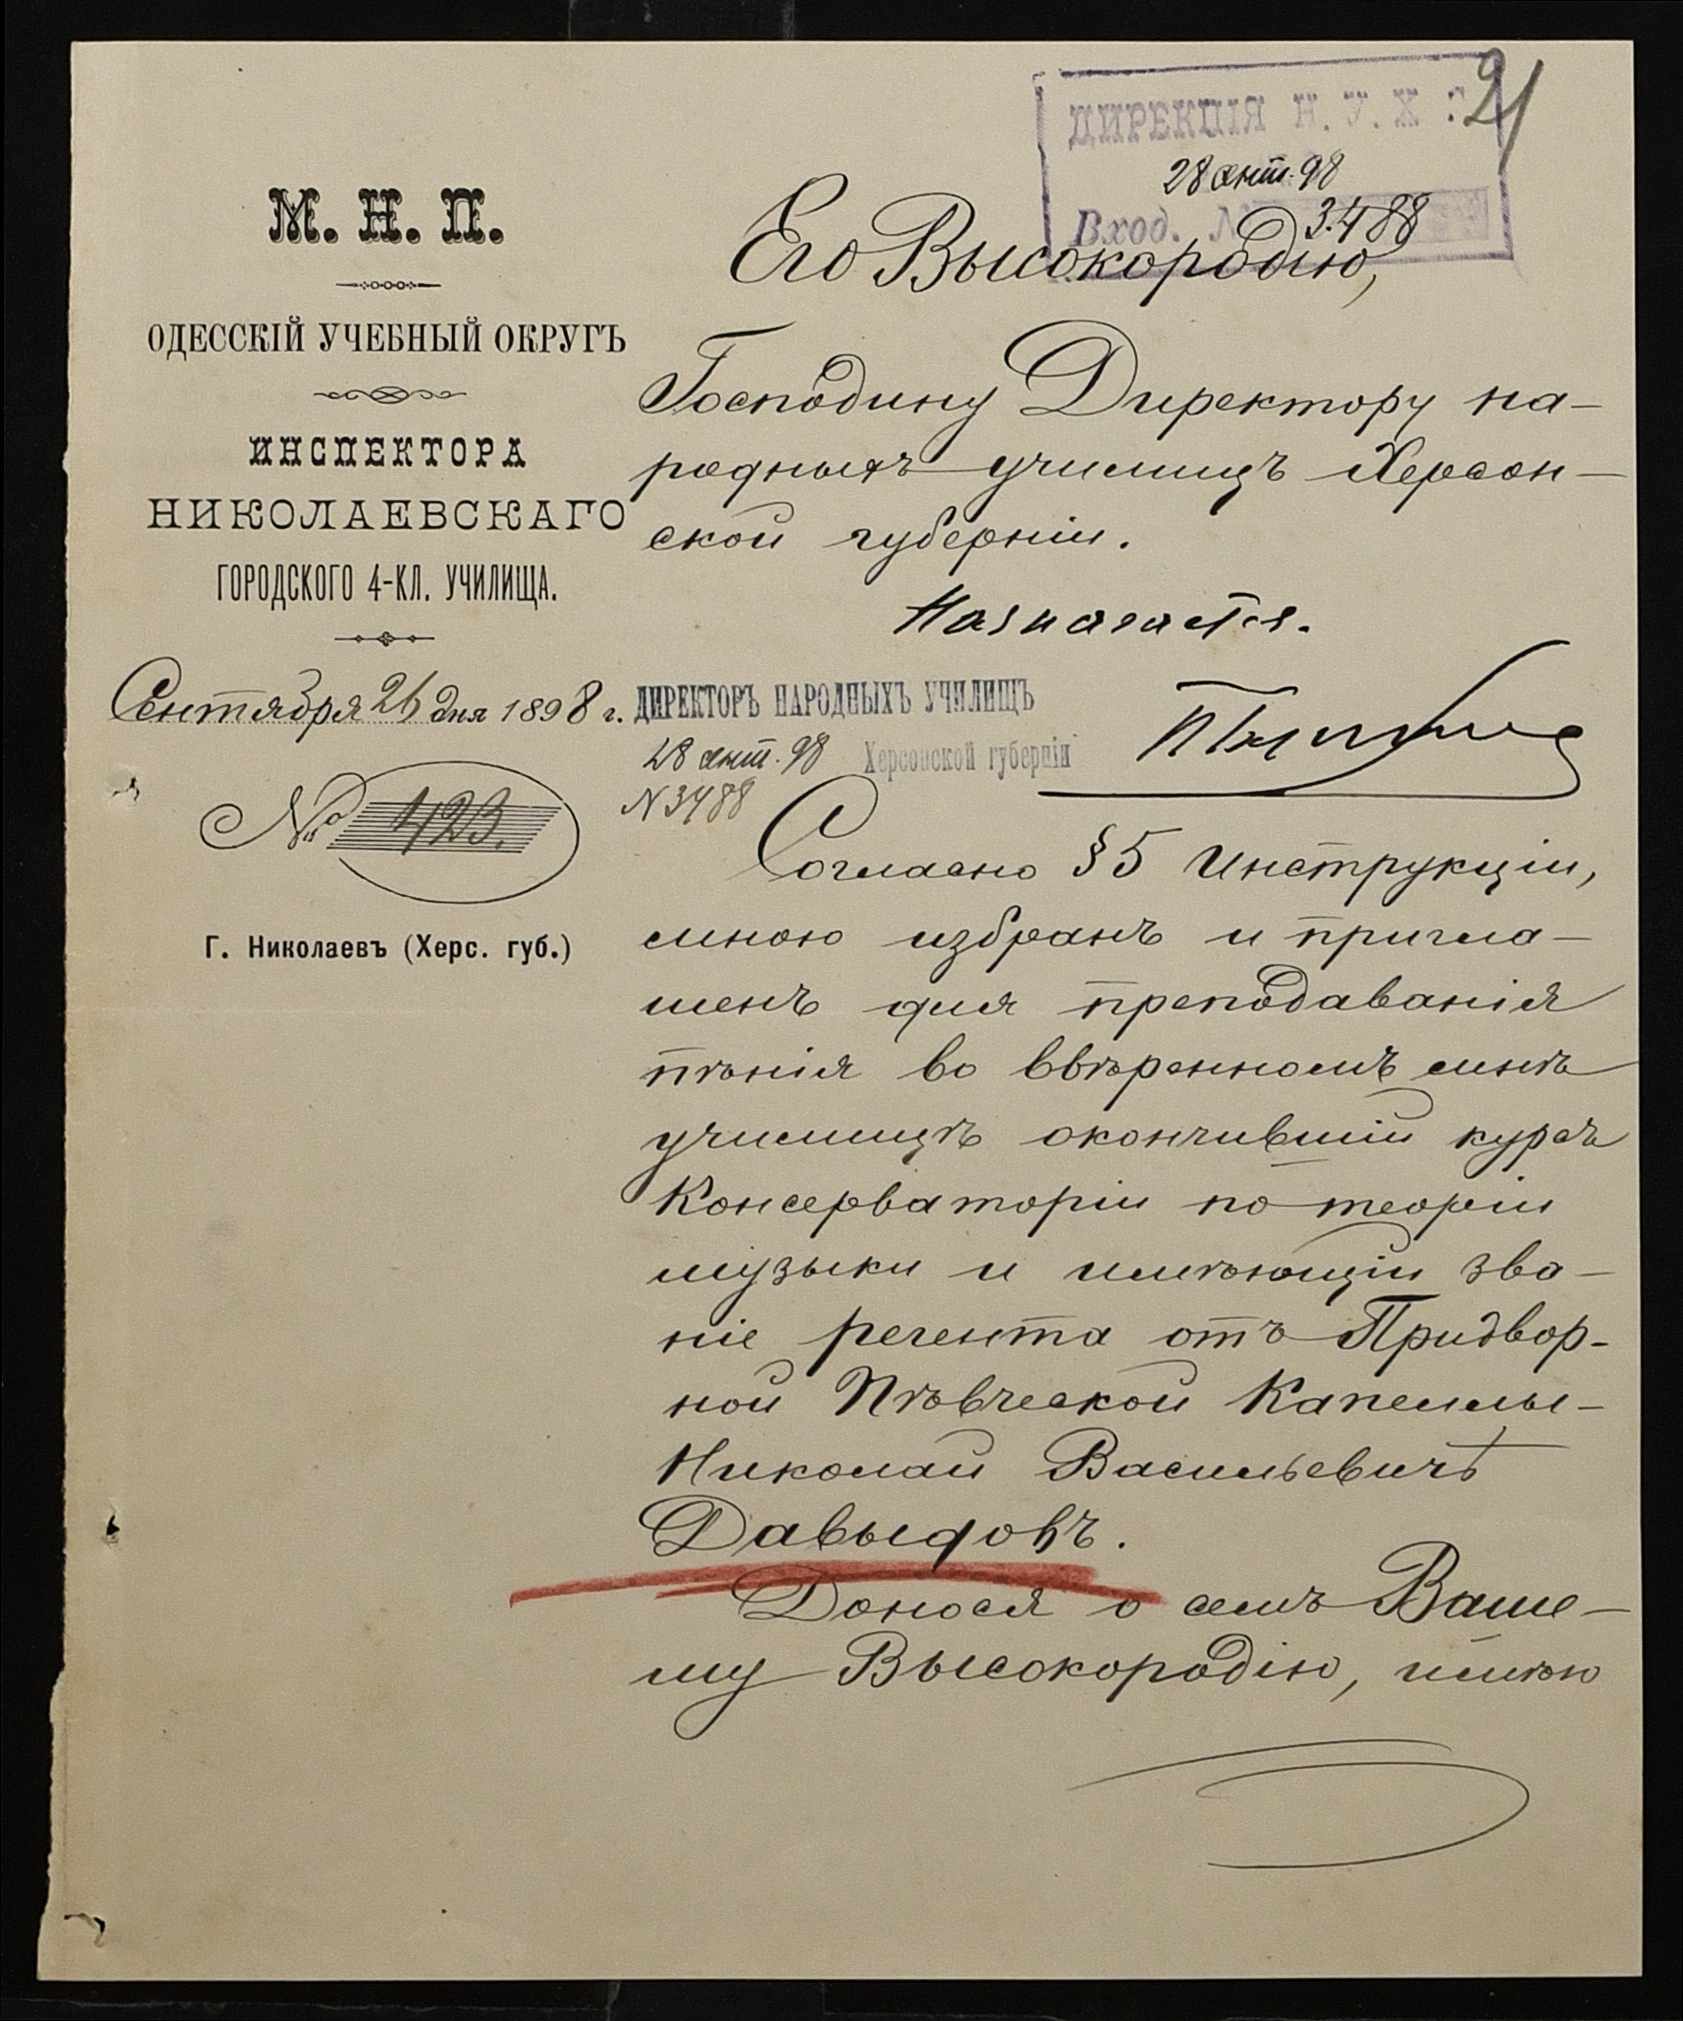 21
ДИРЕКЦІЯ Н. У. Х. Г.
28 сент. 98
Вход. № 3488
М. Н. П.
ОДЕССКІЙ УЧЕБНЫЙ ОКРУГЪ
ИНСПЕКТОРА
НИКОЛАЕВСКАГО
ГОРОДСКОГО 4-КЛ. УЧИЛИЩА.
Сентября 26 дня 1898 г.
№ 423.
Г. Николаевъ (Херс. губ.)
Его Высокородію,
Господину Директору на-
родныхъ училищъ Херсон-
ской губерніи.
Назначается.
ДИРЕКТОРЪ НАРОДНЫХЪ УЧИЛИЩЪ
28 сент. 98 Херсонской губерніи
N 3488
Согласно § 5 Инструкціи,
мною избранъ и пригла-
шенъ для преподаванія
пѣнія во ввѣренномъ мнѣ
училищѣ окончившій курсъ
Консерваторіи по теоріи
музыки и имѣющій зва-
ніе регента отъ Придвор-
ной Пѣвческой Капеллы-
Николай Васильевичъ
Давыдовъ.
Донося о семъ Ваше-
му Высокородію, имѣю